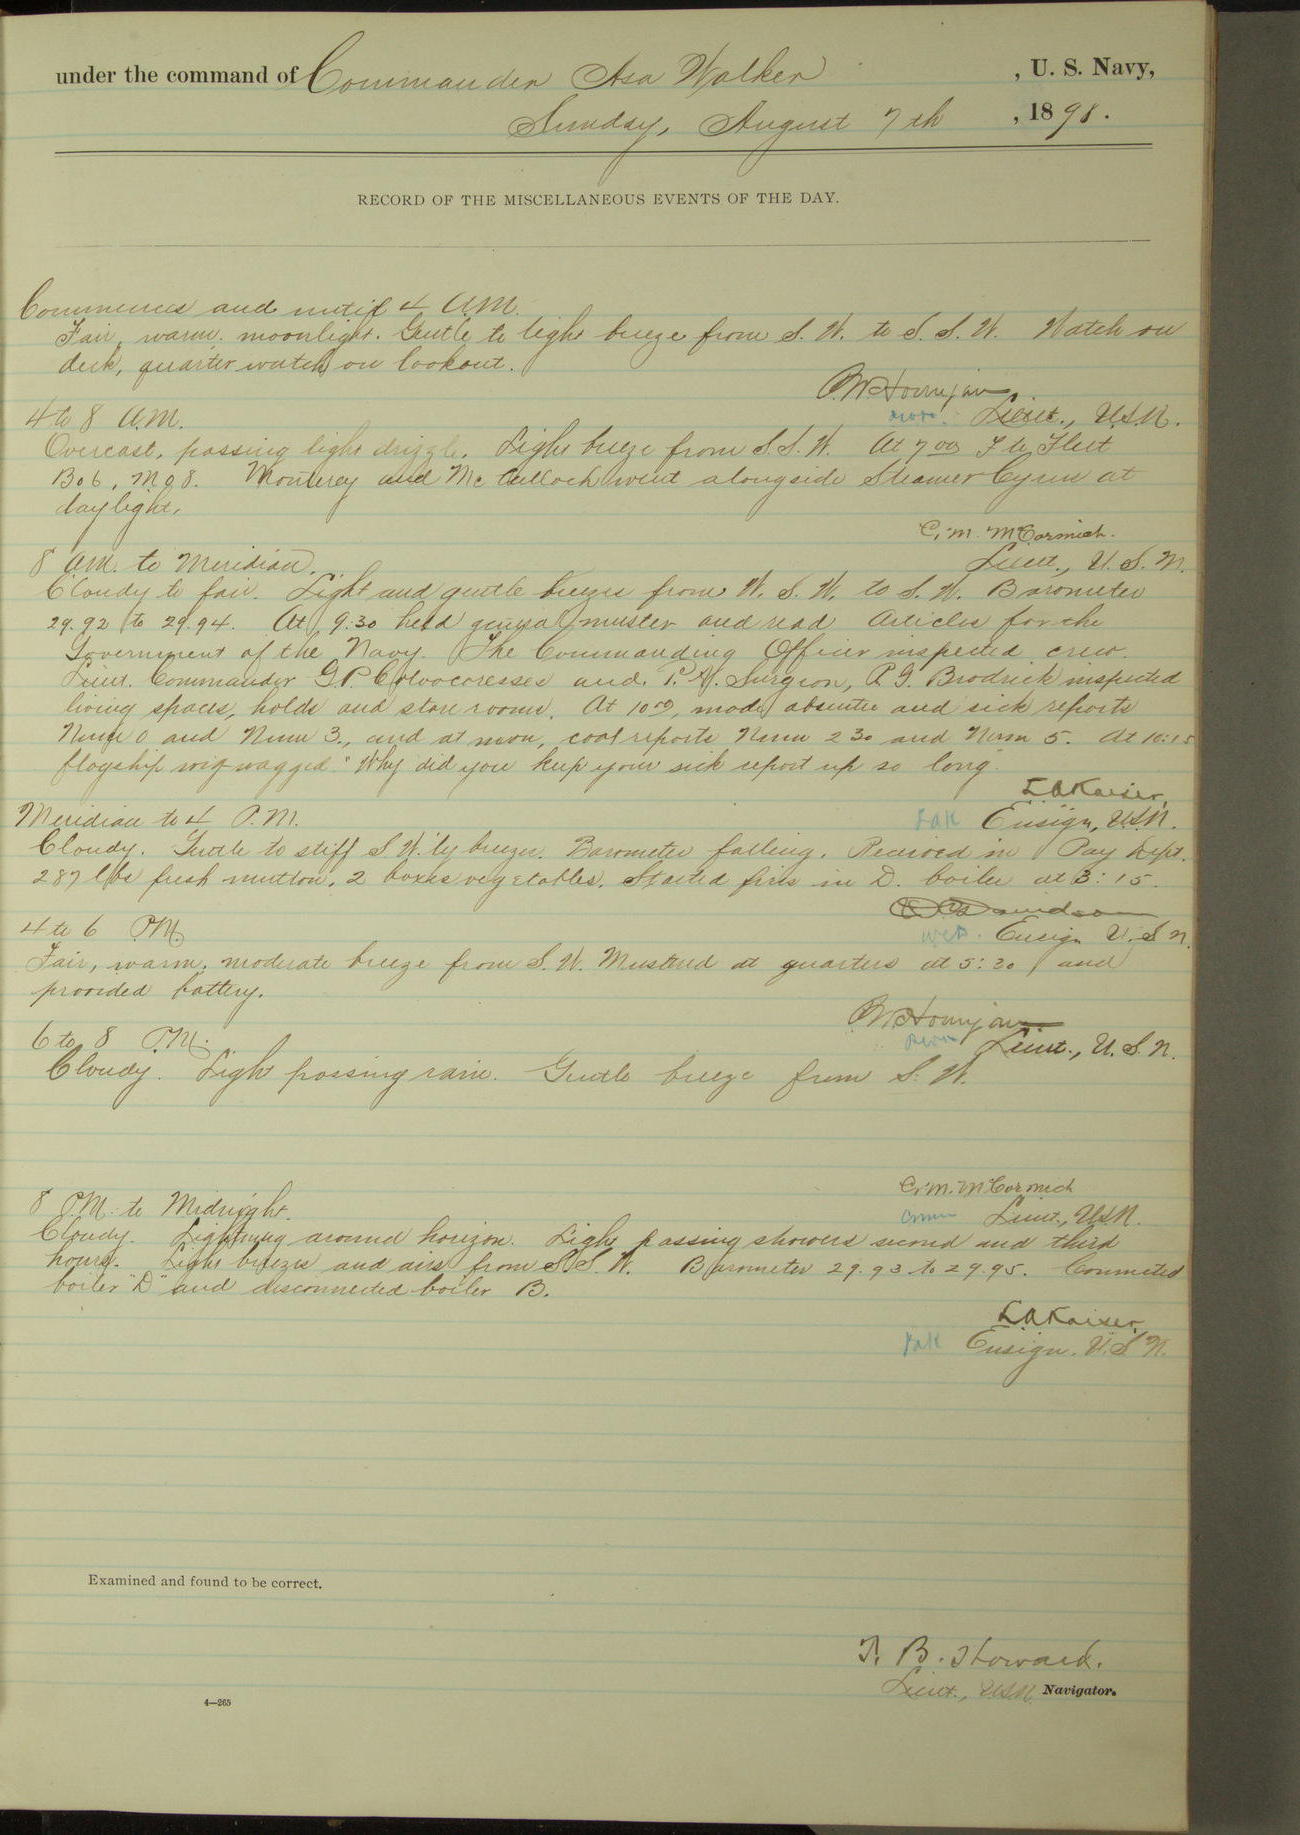 under the command of Commander Asa Walker, U. S. Navy,
Sunday, August 7th, 1898.
RECORD OF THE MISCELLANEOUS EVENTS OF THE DAY.
Commences and until 4 A.M.
Fair, warm, moonlight. Gentle to light breeze from S. W. to S. S. W. Watch on
deck, quarter watch on lookout.
Lieut., U.S.N.
4 to 8 A.M.
Overcast, passing light drizzle. Light breeze from S. S. W. At 7 00 F to Fleet
Bo 6, Mo 8. Monterey and McCulloch went alongside Steamer Cyrus at
daylight.
C. M. McCormick.
Lieut., U. S. N.
8 A.M. to Meridian.
Cloudy to fair. Light and gentle breezes from W. S. W. to S. W. Barometer
29.92 to 29.94. At 9:30 held general muster and read Articles for the
Government of the Navy. The Commanding Officer inspected crew.
Lieut. Commander G. P. Colvocoresses and P. A. Surgeon, P. G. Brodrick inspected
living spaces, holds and store rooms. At 10 00, made absentee and sick reports
Num 0 and Num 3., and at noon, coal reports Num 230 and Num 5. At 10:15
flagship wig-wagged "Why did you keep your sick report up so long
L A Kaiser,
LAK Ensign, U.S.N.
Meridian to 4 P.M.
Cloudy. Gentle to stiff S. W.'ly breezes. Barometer falling. Received in Pay Dept.
287 lbs fresh mutton, 2 boxes vegetables. Started fires in D. boiler at 3:15.
Davidson
Ensign U. S. N.
4 to 6 P.M.
Fair, warm, moderate breeze from S. W. Mustered at quarters at 5:30 and
provided battery.
Lieut., U. S. N.
6 to 8 P.M.
Cloudy. Light passing rain. Gentle breeze from S. W.
C. M. McCormick
CMM Lieut., U.S.N.
8 P.M. to Midnight.
Cloudy. Lightning around horizon. Light passing showers second and third
hours. Light breezes and airs from S. S. W. Barometer 29.93 to 29.95. Connected
boiler "D" and disconnected boiler B.
L A Kaiser,
LAK Ensign. U. S. N.
Examined and found to be correct.
T. B. Howard.
Lieut., U.S.N. Navigator.
4—265